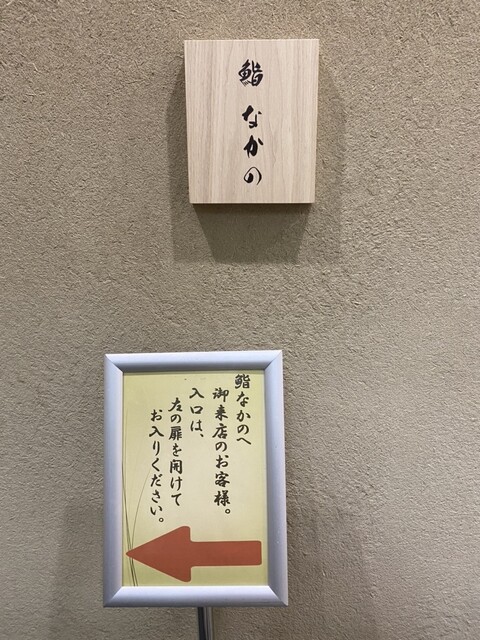 鮨 なかの
鮨なかのへ
御来店のお客様。
入口は、
左の扉を開けて
お入りください。